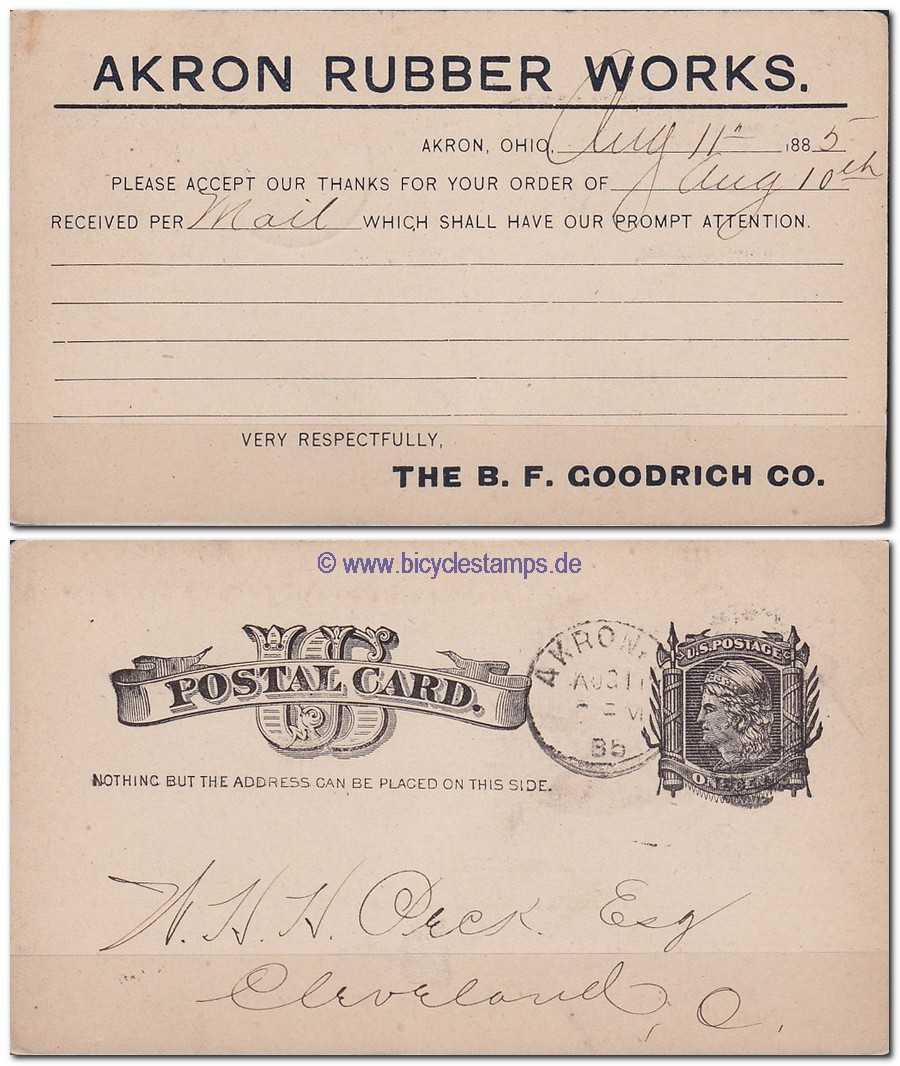 AKRON RUBBER WORKS.
AKRON, OHIO, Aug 11th 1885
PLEASE ACCEPT OUR THANKS FOR YOUR ORDER OF Aug 10th
RECEIVED PER Mail WHICH SHALL HAVE OUR PROMPT ATTENTION.
VERY RESPECTFULLY,
THE B. F. GOODRICH CO.
© www.bicyclestamps.de
US
POSTAL CARD.
NOTHING BUT THE ADDRESS CAN BE PLACED ON THIS SIDE.
AKRON
AUG 11
PM
85
U.S. POSTAGE
ONE CENT
W. H. H. Peck Esq
Cleveland, O.